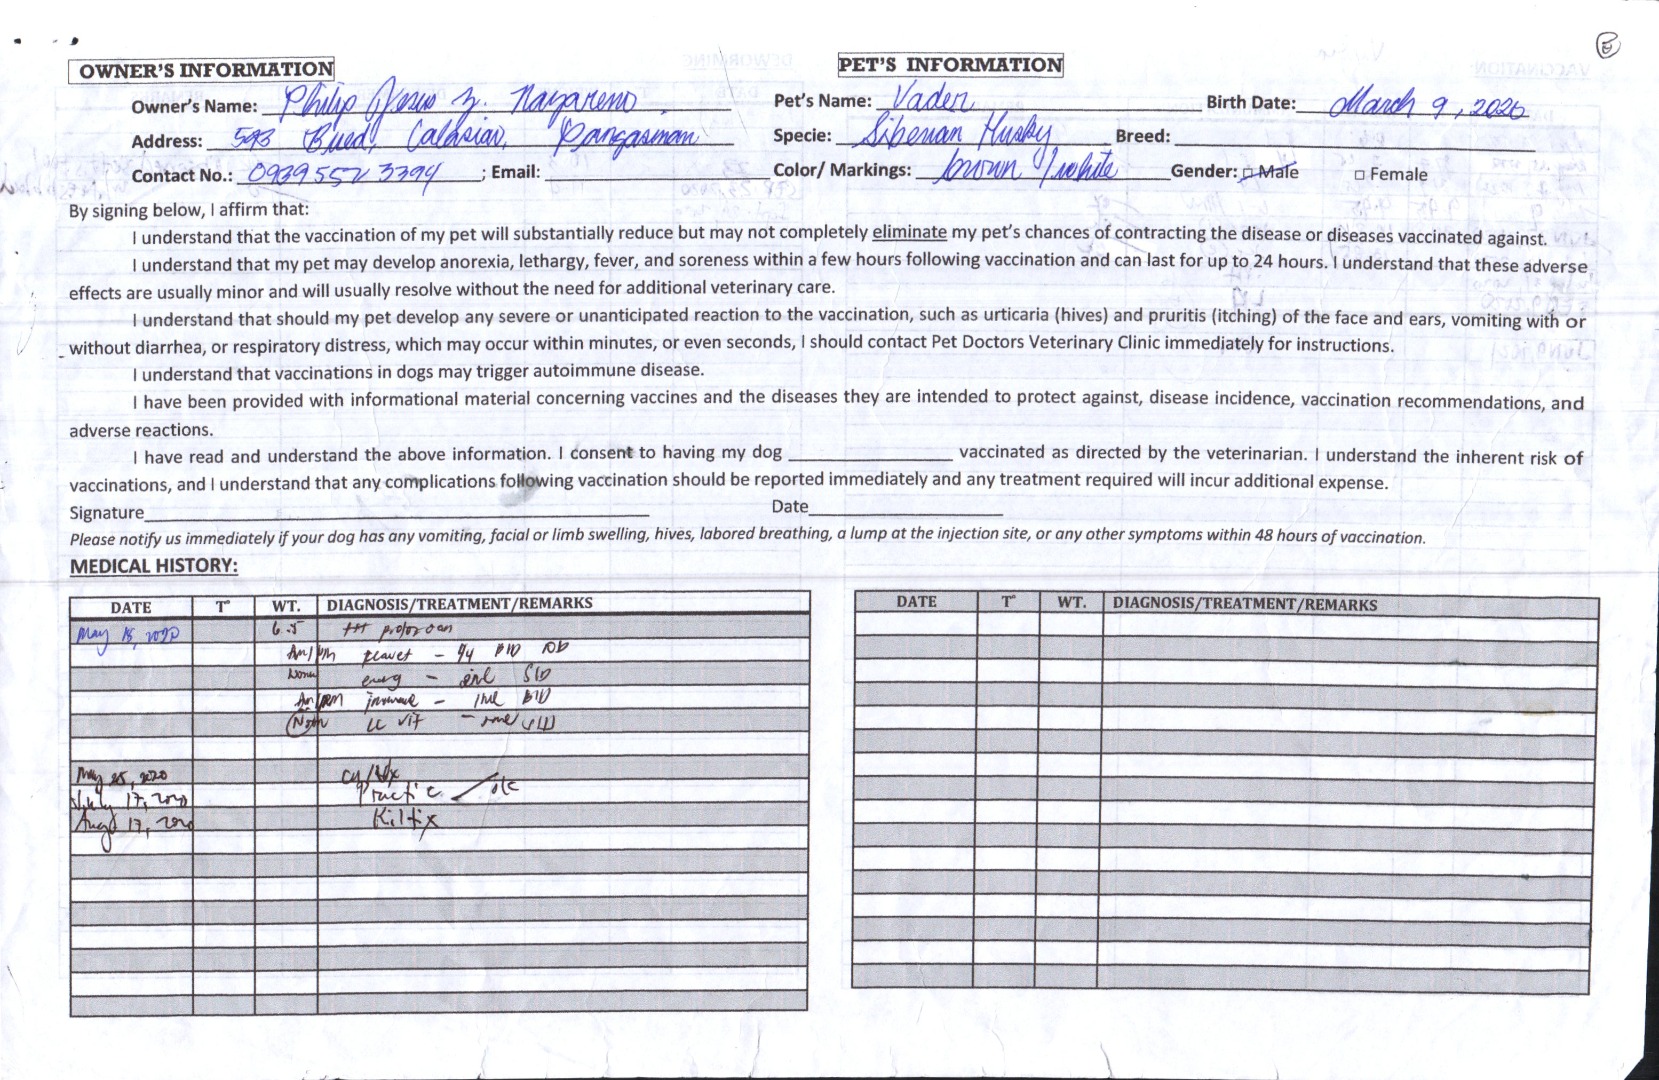 OWNER'S INFORMATION
PET'S INFORMATION
Owner's Name: Philip Jesus Z. Nazareno
Pet's Name: Vader Birth Date: March 9, 2020
Address: 593 Bued, Calasiao, Pangasinan
Specie: Siberian Husky Breed:
Contact No.: 0939 557 3394 ; Email:
Color/ Markings: brown / white Gender: □ Male □ Female
By signing below, I affirm that:
I understand that the vaccination of my pet will substantially reduce but may not completely eliminate my pet's chances of contracting the disease or diseases vaccinated against.
I understand that my pet may develop anorexia, lethargy, fever, and soreness within a few hours following vaccination and can last for up to 24 hours. I understand that these adverse
effects are usually minor and will usually resolve without the need for additional veterinary care.
I understand that should my pet develop any severe or unanticipated reaction to the vaccination, such as urticaria (hives) and pruritis (itching) of the face and ears, vomiting with or
without diarrhea, or respiratory distress, which may occur within minutes, or even seconds, I should contact Pet Doctors Veterinary Clinic immediately for instructions.
I understand that vaccinations in dogs may trigger autoimmune disease.
I have been provided with informational material concerning vaccines and the diseases they are intended to protect against, disease incidence, vaccination recommendations, and
adverse reactions.
I have read and understand the above information. I consent to having my dog vaccinated as directed by the veterinarian. I understand the inherent risk of
vaccinations, and I understand that any complications following vaccination should be reported immediately and any treatment required will incur additional expense.
Signature Date
Please notify us immediately if your dog has any vomiting, facial or limb swelling, hives, labored breathing, a lump at the injection site, or any other symptoms within 48 hours of vaccination.
MEDICAL HISTORY:
DATE T° WT. DIAGNOSIS/TREATMENT/REMARKS
May 18, 2020 6.5 +++ protozoan
Am/pm - BID
- SID
Am/pm - 1ml BID
LC vit -
May 25, 2020
July 17, 2020 Practic
Aug 17, 2020 Kiltix
DATE T° WT. DIAGNOSIS/TREATMENT/REMARKS